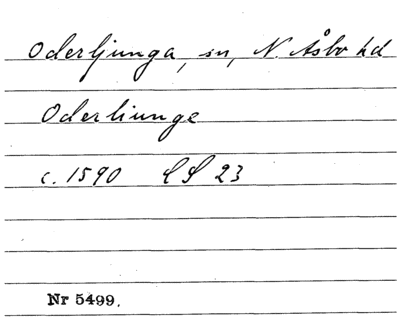 Oderljunga, sn, N. Åsbo hd
Oderliunge
c. 1590 LS 23
Nr 5499.